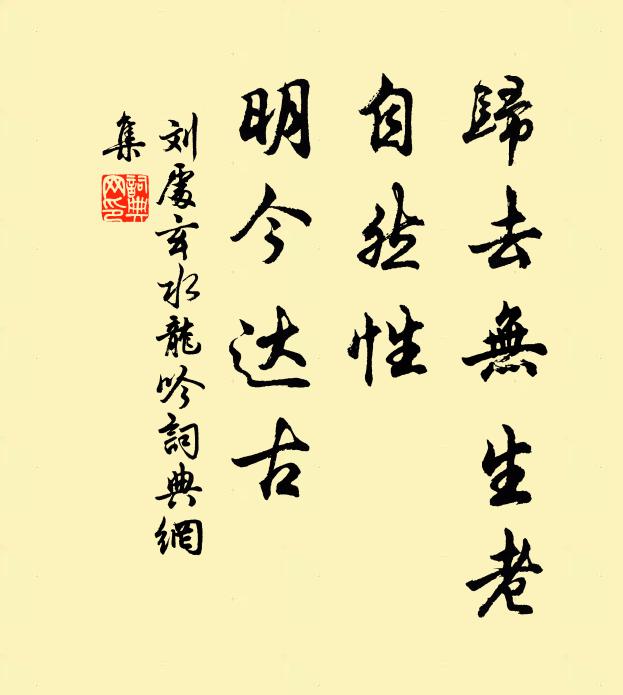 歸去無生老
自然性
明今达古
刘處玄水龍吟詞典網
集
詞典
网印